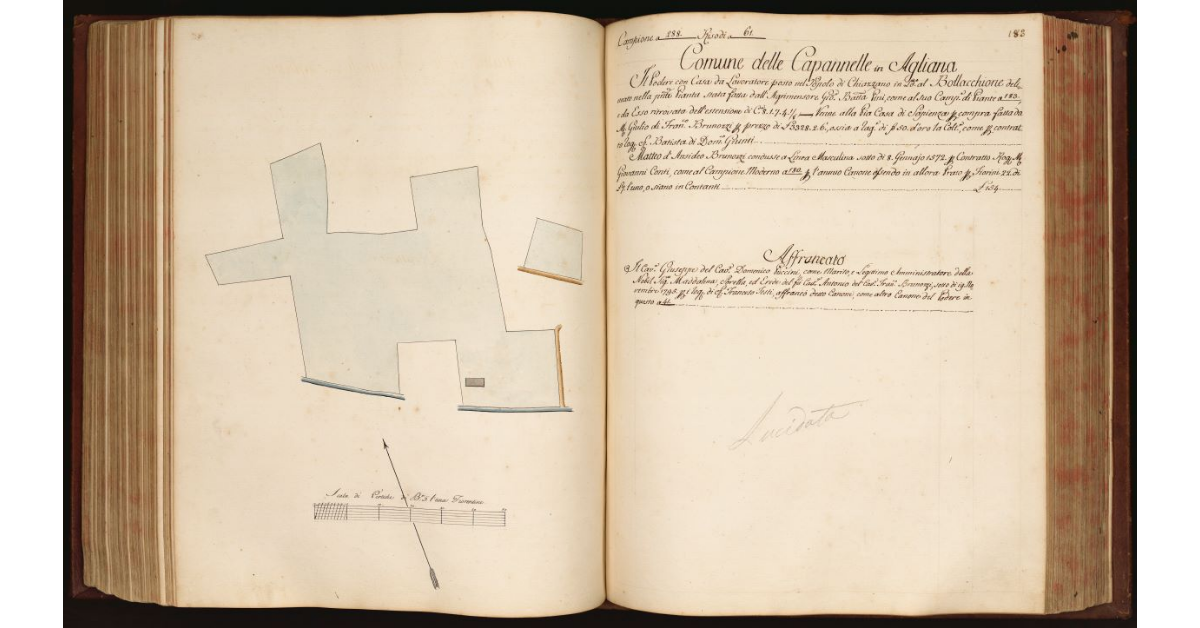 Campione a 188. Risodi a 61.
183
Comune delle Capannelle in Agliana
Il Podere con Casa da Lavoratore posto nel Popolo di Chiazzano in L.º d.º al Bollacchione deli-
neato nella pñte Pianta stata fatta dall'Agrimensore Gio. Batta come al suo Camp.e di Piante a 183.
e da Esso ritrovato dell'estensione di C. 8.1.7.4½ Viene alla Pia Casa di Sapienza compra fatta da
M. Giulio di Fran.º Brunozzi prezzo di 3328.2.6. ossia a di 50. d'oro la Colt.ª come contrat-
to Batista di Dom.º
Matteo d'Ansideo Brunozzi condusse a Linea Mascolina sotto dì 8. Gennajo 1572. Contratto Rog. M.
Giovanni Conti, come al Campione Moderno a 180. l'annuo Canone essendo in allora Fiorini 22. di
o siano in Contanti £ 154
Affrancato
Il Cav.e Giuseppe del Cav.e Domenico Puccini, come Marito, e Legittimo Amministratore della
Nobil Sig.ra Maddalena, ed Erede del fù Cav.e Antonio del Cav.e Fran.º Brunozzi, sotto dì 19. No-
vembre 1795. di Francesco affrancò detto Canone, come altro Canone del Podere in
questo a 61.
Lucidata
Scala di Pertiche di B.ª 5. l'una Fiorentine